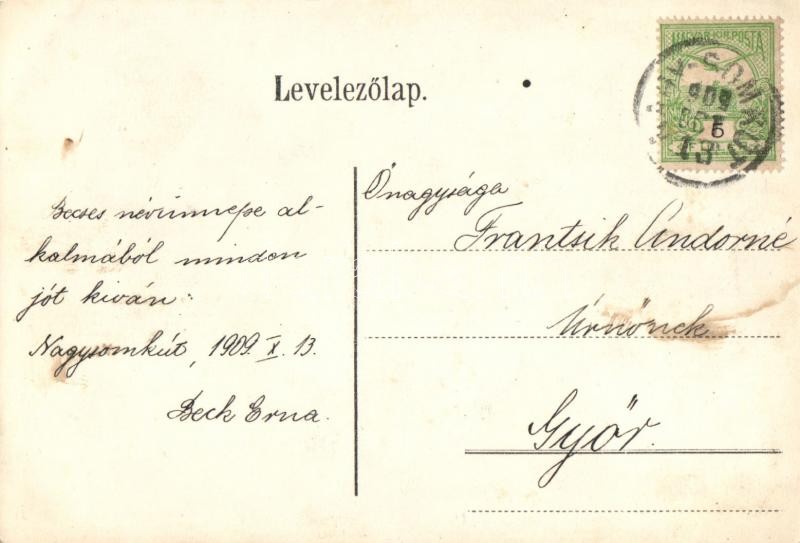 Levelezőlap.
MAGYAR KIR. POSTA
5
909
13
Becses névünnepe al-
kalmából minden
jót kiván:
Nagysomkút, 1909. X. 13.
Beck Erna.
Őnagysága
Frantsik Andorné
Úrnőnek
Győr.